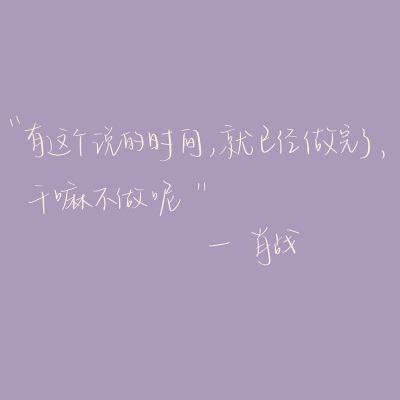 "有这个说的时间,就已经做完了,
干嘛不做呢"
— 肖战